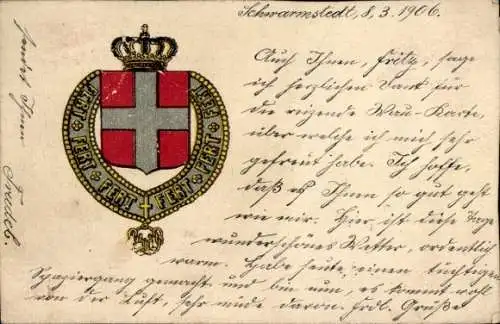 Schwarmstedt, 8.3.1906.
Auch Ihnen, Fritz, sage
ich herzlichen Dank für
die reizende Wau-Karte,
über welche ich mich sehr
gefreut habe. Ich hoffe,
daß es Ihnen so gut geht
wie mir. Hier ist diese Tage
wunderschönes Wetter, ordentlich
warm. Habe heute einen tüchtigen
Spaziergang gemacht und bin nun, es kommt wohl
von der Luft, sehr müde davon. Frdl. Grüße
sendet Ihnen
Friedel.
FERT FERT FERT FERT